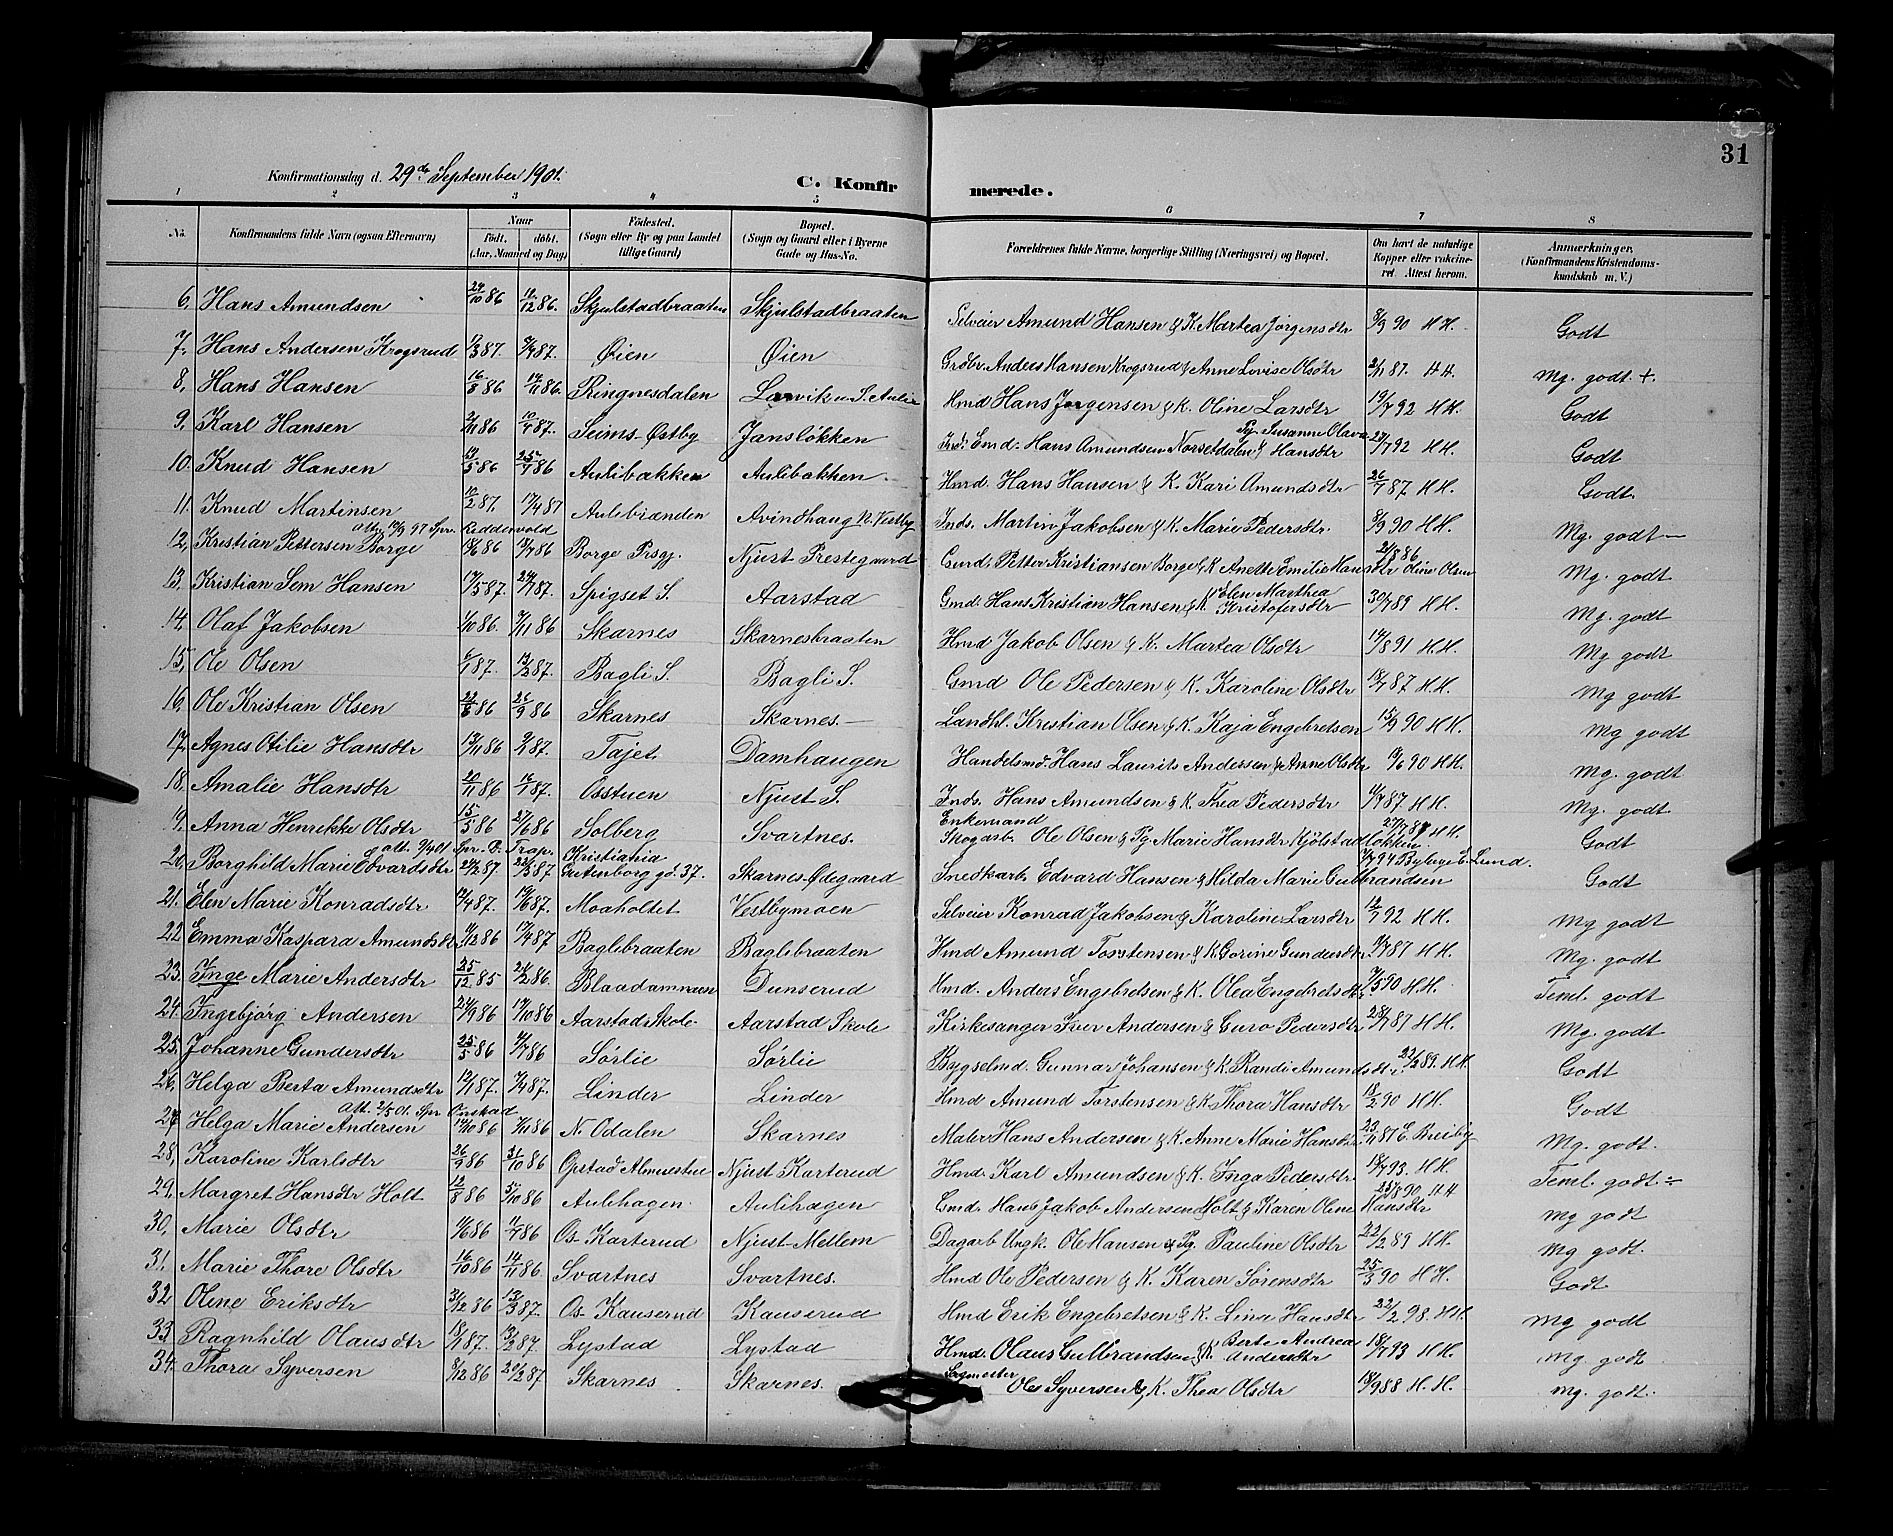 31
Konfirmationsdag d. 29de September 1901.
C. Konfirmerede.
1 2 3 4 5 6 7 8
No. Konfirmandens fulde Navn (ogsaa Efternavn) Naar født. døbt. (Aar, Maaned og Dag) Fødested. (Sogn eller By og paa Landet tillige Gaard) Bopæl. (Sogn og Gaard eller i Byerne Gade og Hus-No. Forældrenes fulde Navne, borgerlige Stilling (Næringsvei) og Bopæl. Om havt de naturlige Kopper eller vakcineret. Attest herom. Anmærkninger. (Konfirmandens Kristendomskundskab m. V.)
6. Hans Amundsen 29/10 86 /12 86. Skjulstadbraaten Skjulstadbraaten Selveier Amund Hansen & K. Martea Jørgensdtr 8/9 90 HH. Godt
7. Hans Andersen Krogsrud /3 87. /4 87. Øien Øien Grdbr. Anders Hansen Krogsrud & Anne Lovise Olsdtr 2/11 87. HH. Mg. godt +.
8. Hans Hansen 16/8 86 14/11 86. Ringnesdalen Larvik u. S. Aulie Hmd Hans Jørgensen & K. Oline Larsdtr 19/7 92 HH. Godt
9. Karl Hansen 2/11 86 10/7 87. Seims-Østby Jansløkken Inds. Emd. Hans Amundsen Norsetdalen & Pg. Susanne Olava Hansdtr 29/7 92 HH. Godt
10. Knud Hansen 19/5 86 25/7 86 Aulibakken Aulibakken. Hmd. Hans Hansen & K. Kari Amundsdtr 26/7 87 HH. Godt.
11. Knud Martinsen 10/2 87. 17/4 87 Aulebrænden Avindhaug N. Vestby Inds. Martin Jakobsen & K. Marie Pedersdtr. 8/9 90 HH. Mg. godt —
12. Kristian Pettersen Borge Att. 12/9 97 Spr. Reddervold 18/6 86 18/7 86 Borge Prsgj. Njust Prestegaard Gmd. Petter Kristiansen Borge & K. Anette Emilie Hansdtr 2/8 86 Oline Olsen Mg. godt
13. Kristian Sem Hansen 17/5 87. 24/7 87. Spigset S. Aarstad Gmd. Hans Kristian Hansen & K Elen Marthea Kristofersdtr 30/7 89 HH. Mg. godt
14. Olaf Jakobsen 1/10 86. 7/11 86 Skarnes Skarnesbraaten Hmd Jakob Olsen & K. Martea Olsdtr 14/8 91 HH. Mg godt
15. Ole Olsen 6/1 87. 13/2 87. Bagli S. Bagli S. Gmd Ole Pedersen & K. Karoline Olsdtr 18/7 87 HH. Mg godt
16. Ole Kristian Olsen 22/8 86 26/9 86 Skarnes Skarnes. — Landhl. Kristian Olsen & K. Kaja Engebretsen 15/9 90 HH. Mg godt
17. Agnes Otilie Hansdtr 13/11 86 9/2 87. Tajet Damhaugen Handelsmd. Hans Laurits Andersen & Anne Olsdtr 19/6 90 HH. Mg. godt
18. Amalie Hansdtr 20/11 86 16/1 87. Osstuen Njust S. Inds. Hans Amundsen & K. Thea Pedersdtr 4/7 87 HH. Mg. godt
19. Anna Henrikke Olsdtr 15/5 86 27/6 86 Solberg Svartnes. Enkemand Skogarb. Ole Olsen & Pg. Marie Hansdtr Kjølstadløkken 27/7 87 HH. Godt
20. Borghild Marie Edvardsdtr Att. 9/4 01 Spr. P. Trap. 24/2 87. 28/3 87 Kristiania Gutenberg gd. 37. Skarnes-Ødegaard Snedkarb. Edvard Hansen & Hilda Marie Gulbrandsen 4/7 94 Bylæge E. Lund. Godt
21. Elen Marie Konradsdtr 17/4 87. 19/6 87. Moaholtet Vestbymoen Selveier Konrad Jakobsen & Karoline Larsdtr 12/7 92 HH. Mg godt
22 Emma Kaspara Amundsdtr 4/12 86 17/4 87 Baglebraaten Baglebraaten Hmd Amund Torstensen & K. Gorine Gundersdtr. 9/7 87 HH. Mg. godt
23. Inge Marie Andersdtr 25/12 85 21/2 86. Blaadammen Dunserud Hmd. Anders Engebretsen & K. Olea Engebretsdtr 7/5 90 HH. Teml. godt
24. Ingebjørg Andersen 24/9 86 17/10 86 Aarstad Skole Aarstad Skole Kirkesanger Iver Andersen & Guro Pedersdtr 28/7 87 HH. Mg. godt
25. Johanne Gundersdtr 25/5 86 4/7 86 Sørlie Sørlie Bygselmd. Gunnar Johansen & K. Randi Amundsdtr. 22/2 89. HH. Godt
26. Helga Berta Amundsdtr 12/1 87. 7/4 87. Linder Linder Hmd Amund Torstensen & K. Thora Hansdtr 18/2 90 HH. Godt
27. Helga Marie Andersen Att. 2/5 01. Spr Onstad 14/10 86 7/11 86 N. Odalen Skarnes Maler Hans Andersen & K. Anne Marie Hansdtr. 23/11 87 E. Breiby Mg. godt.
28. Karoline Karlsdtr 26/9 86 31/10 86 Opstad Almuestue Njust Karterud Hmd. Karl Amundsen & K. Inga Pedersdtr. 18/7 93. HH. Teml. godt ÷
29. Margret Hansdtr Holt 12/8 86 5/10 86 Aulihagen. Aulihagen Emd. Hans Jakob Andersen Holt & Karen Oline Hansdtr 25/8 90 HH Mg godt
30. Marie Olsdtr 4/6 86 4/7 86 Os. Karterud Njust-Mellem Dagarb Ungk. Ole Hansen & Pg. Pauline Olsdtr 22/2 89 HH. Mg godt.
31. Marie Thore Olsdtr 16/10 86 14/11 86. Svartnes Svartnes. Hmd Ole Pedersen & K. Karen Sørensdtr 25/3 90 HH. Godt
32. Oline Eriksdtr 31/12 86 13/3 87. Os. Kauserud Kauserud Hmd Erik Engebretsen & K. Lina Hansdtr 22/2 98. HH. Mg godt
33. Ragnhild Olausdtr 18/1 87. 13/2 87. Lystad Lystad Hmd. Olaus Gulbrandsen & K. Berte Andrea Andersdtr 18/7 93 HH. Mg. godt
34. Thora Syversen 8/12 86 20/2 87 Skarnes Skarnes. Sagmester Ole Syversen & K. Thea Olsdtr 18/9 88 H. H. Mg. godt.